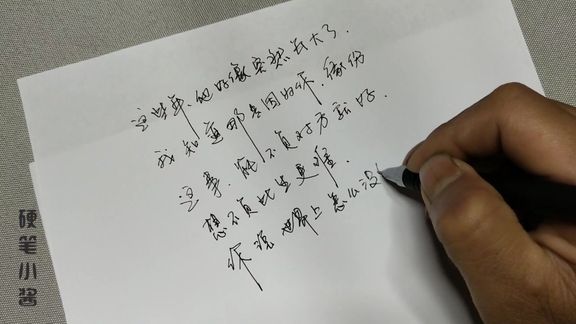 这些年,他好像突然长大了.
我知道那是因为你.缘份
这事.能不负对方就好.
想不负此生更难.
你说世界上怎么没
硬笔小酱